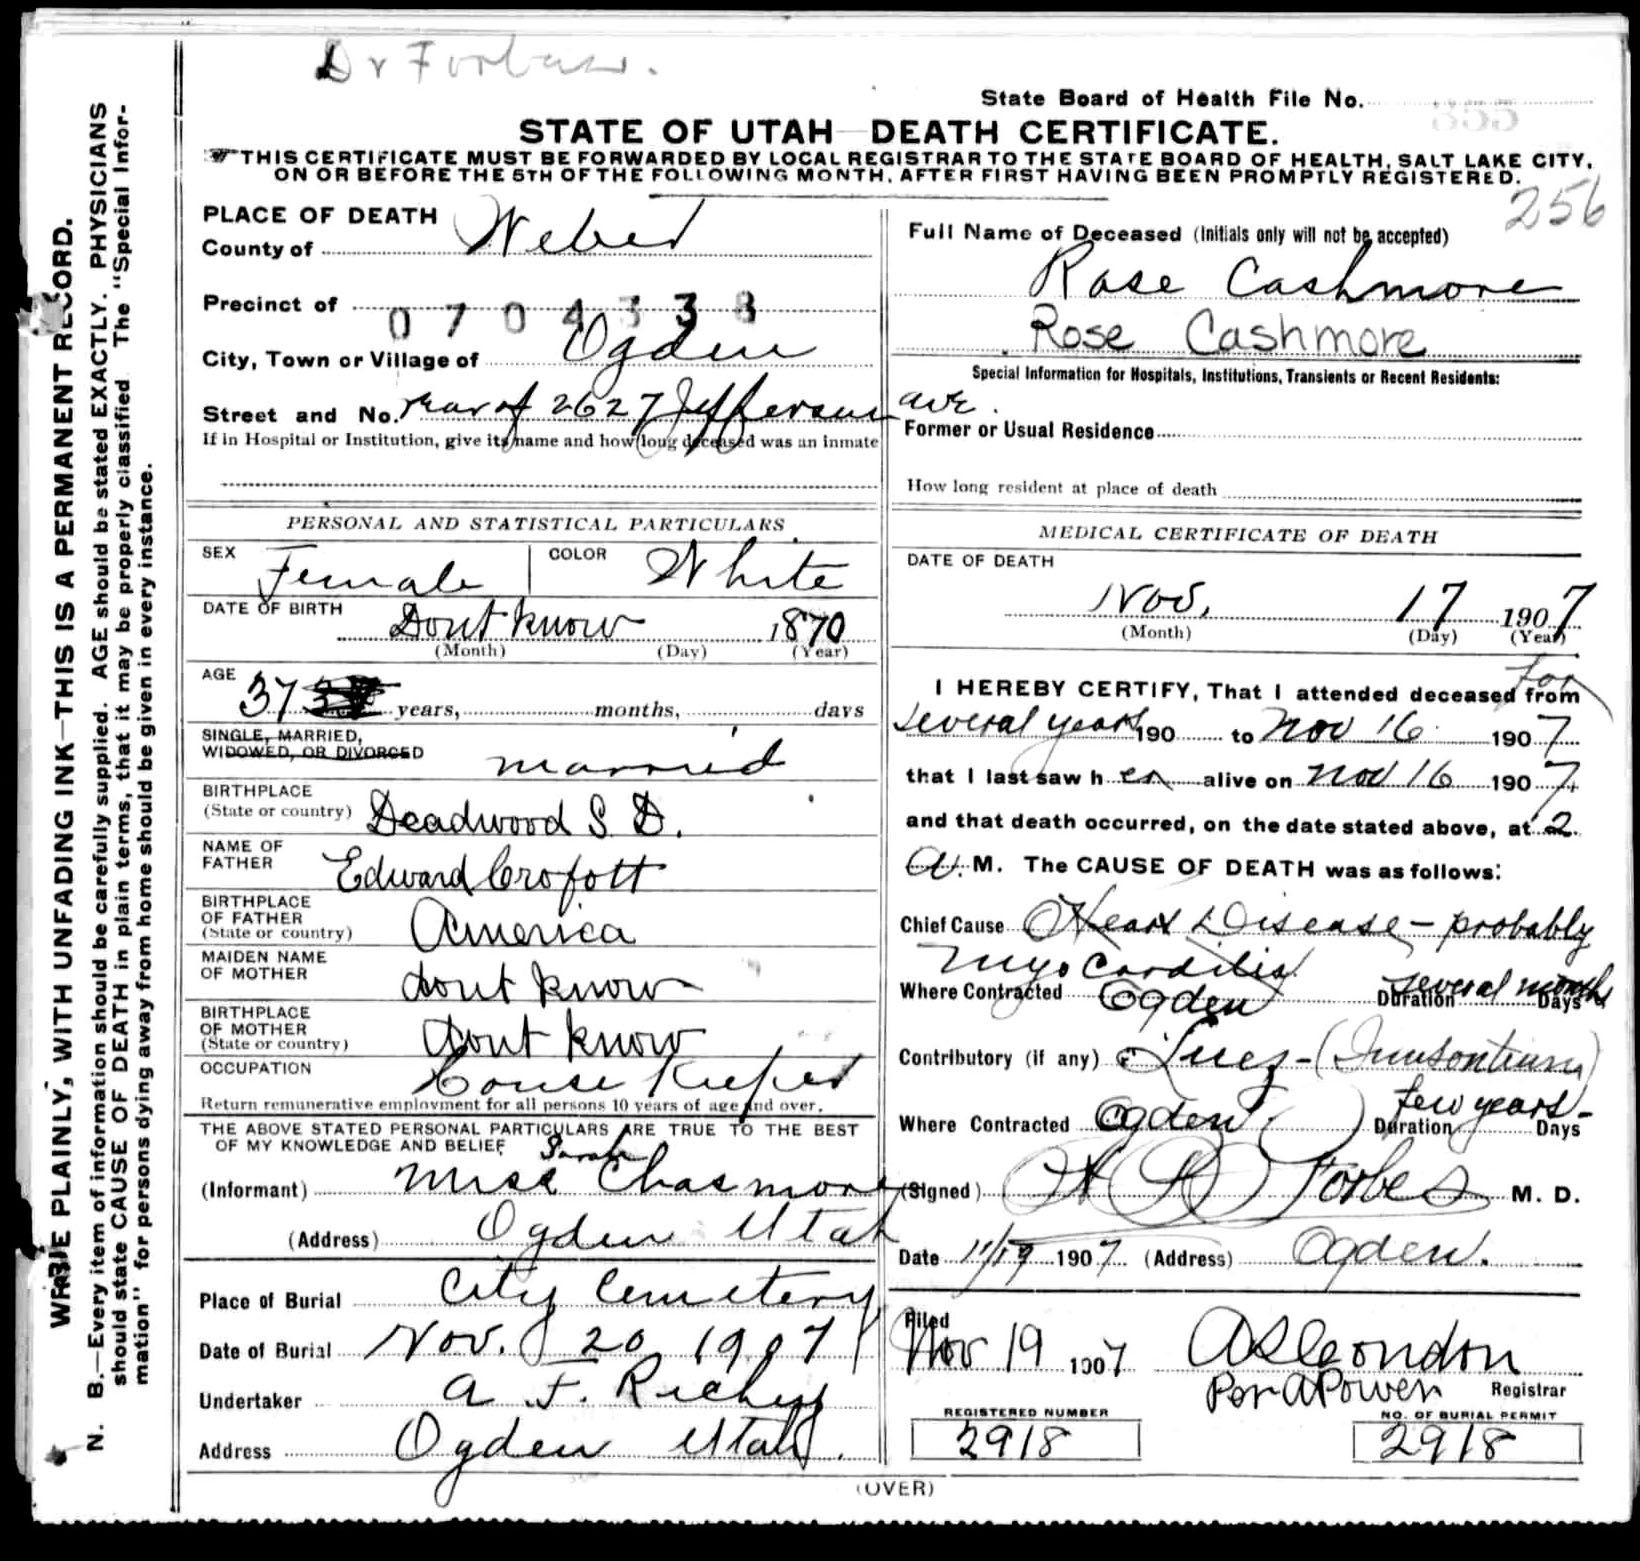 Dr Forbes.
State Board of Health File No.
STATE OF UTAH—DEATH CERTIFICATE.
THIS CERTIFICATE MUST BE FORWARDED BY LOCAL REGISTRAR TO THE STATE BOARD OF HEALTH, SALT LAKE CITY,
ON OR BEFORE THE 5TH OF THE FOLLOWING MONTH, AFTER FIRST HAVING BEEN PROMPTLY REGISTERED.
256
WRITE PLAINLY, WITH UNFADING INK—THIS IS A PERMANENT RECORD.
N. B.—Every item of information should be carefully supplied. AGE should be stated EXACTLY. PHYSICIANS
should state CAUSE OF DEATH in plain terms, that it may be properly classified. The "Special Infor-
mation" for persons dying away from home should be given in every instance.
PLACE OF DEATH
County of Weber
Precinct of
0704338
City, Town or Village of Ogden
Street and No. rear of 2627 Jefferson ave.
If in Hospital or Institution, give its name and how long deceased was an inmate
PERSONAL AND STATISTICAL PARTICULARS
SEX Female COLOR White
DATE OF BIRTH Dont know 1870
(Month) (Day) (Year)
AGE 37 years, months, days
SINGLE, MARRIED,
WIDOWED, OR DIVORCED married
BIRTHPLACE
(State or country) Deadwood S. D.
NAME OF
FATHER Edward Crofott
BIRTHPLACE
OF FATHER
(State or country) America
MAIDEN NAME
OF MOTHER dont know
BIRTHPLACE
OF MOTHER
(State or country) dont know
OCCUPATION House Keeper
Return remunerative employment for all persons 10 years of age and over.
THE ABOVE STATED PERSONAL PARTICULARS ARE TRUE TO THE BEST
OF MY KNOWLEDGE AND BELIEF
Sarah
(Informant) Miss Chasmore
(Address) Ogden Utah
Place of Burial City Cemetery
Date of Burial Nov. 20 1907
Undertaker A. F. Richey
Address Ogden Utah.
Full Name of Deceased (Initials only will not be accepted)
Rose Cashmore
Rose Cashmore
Special Information for Hospitals, Institutions, Transients or Recent Residents:
Former or Usual Residence
How long resident at place of death
MEDICAL CERTIFICATE OF DEATH
DATE OF DEATH
Nov. 17 1907
(Month) (Day) (Year)
for
I HEREBY CERTIFY, That I attended deceased from
several years 190 to Nov 16 1907
that I last saw her alive on Nov 16 1907
and that death occurred, on the date stated above, at 2
A. M. The CAUSE OF DEATH was as follows:
Chief Cause Heart Disease - probably
Myocarditis.
Where Contracted Ogden Duration several months Days
Contributory (if any)
few years -
Where Contracted Ogden Duration Days
(Signed) Forbes M. D.
Date 11/19 1907 (Address) Ogden.
Filed
Nov 19 1907 Condon
Per A Power Registrar
REGISTERED NUMBER
2918
NO. OF BURIAL PERMIT
2918
(OVER)